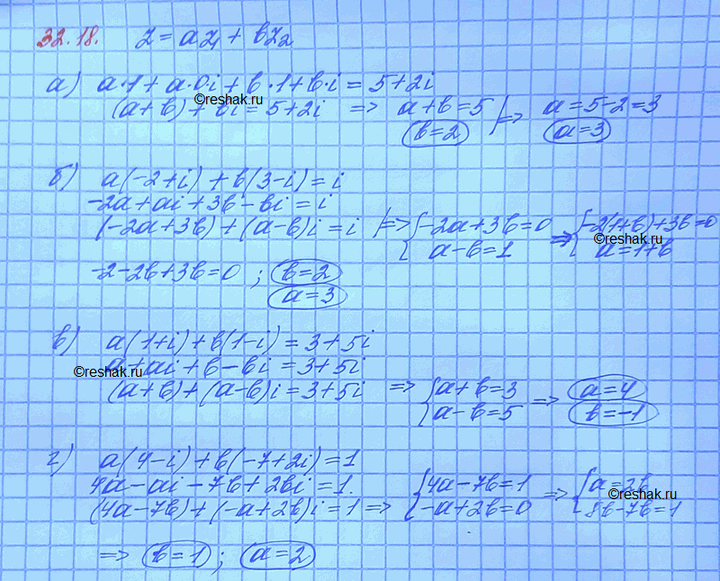 32.18. z = az₁ + bz₂
а) a·1 + a·0i + b·1 + b·i = 5+2i
(a+b) + bi = 5+2i => a+b=5 |=> a=5-2=3
b=2 a=3
reshak.ru
б) a(-2+i) + b(3-i) = i
-2a+ai+3b-bi=i
(-2a+3b)+(a-b)i=i |=> {-2a+3b=0 => {-2(1+b)+3b=0
a-b=1 a=1+b
reshak.ru
-2-2b+3b=0 ; b=2
a=3
в) a(1+i)+b(1-i)=3+5i
a+ai+b-bi=3+5i
reshak.ru
(a+b)+(a-b)i=3+5i => {a+b=3 => a=4
a-b=5 b=-1
г) a(4-i)+b(-7+2i)=1
4a-ai-7b+2bi=1
(4a-7b)+(-a+2b)i=1 => {4a-7b=1 => {a=2b
-a+2b=0 8b-7b=1
reshak.ru
=> b=1 ; a=2